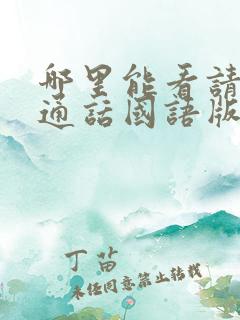 哪里能看請
通話國語版
丁苗
未经同意禁止转载